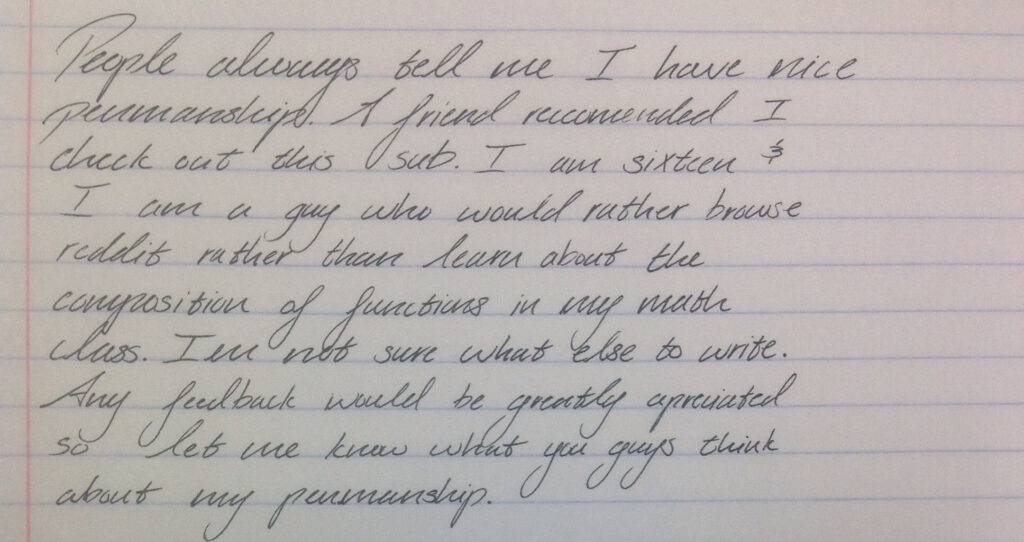 People always tell me I have nice
penmanship. A friend recomended I
check out this sub. I am sixteen &
I am a guy who would rather browse
reddit rather than learn about the
composition of functions in my math
class. I'm not sure what else to write.
Any feedback would be greatly apreciated
so let me know what you guys think
about my penmanship.